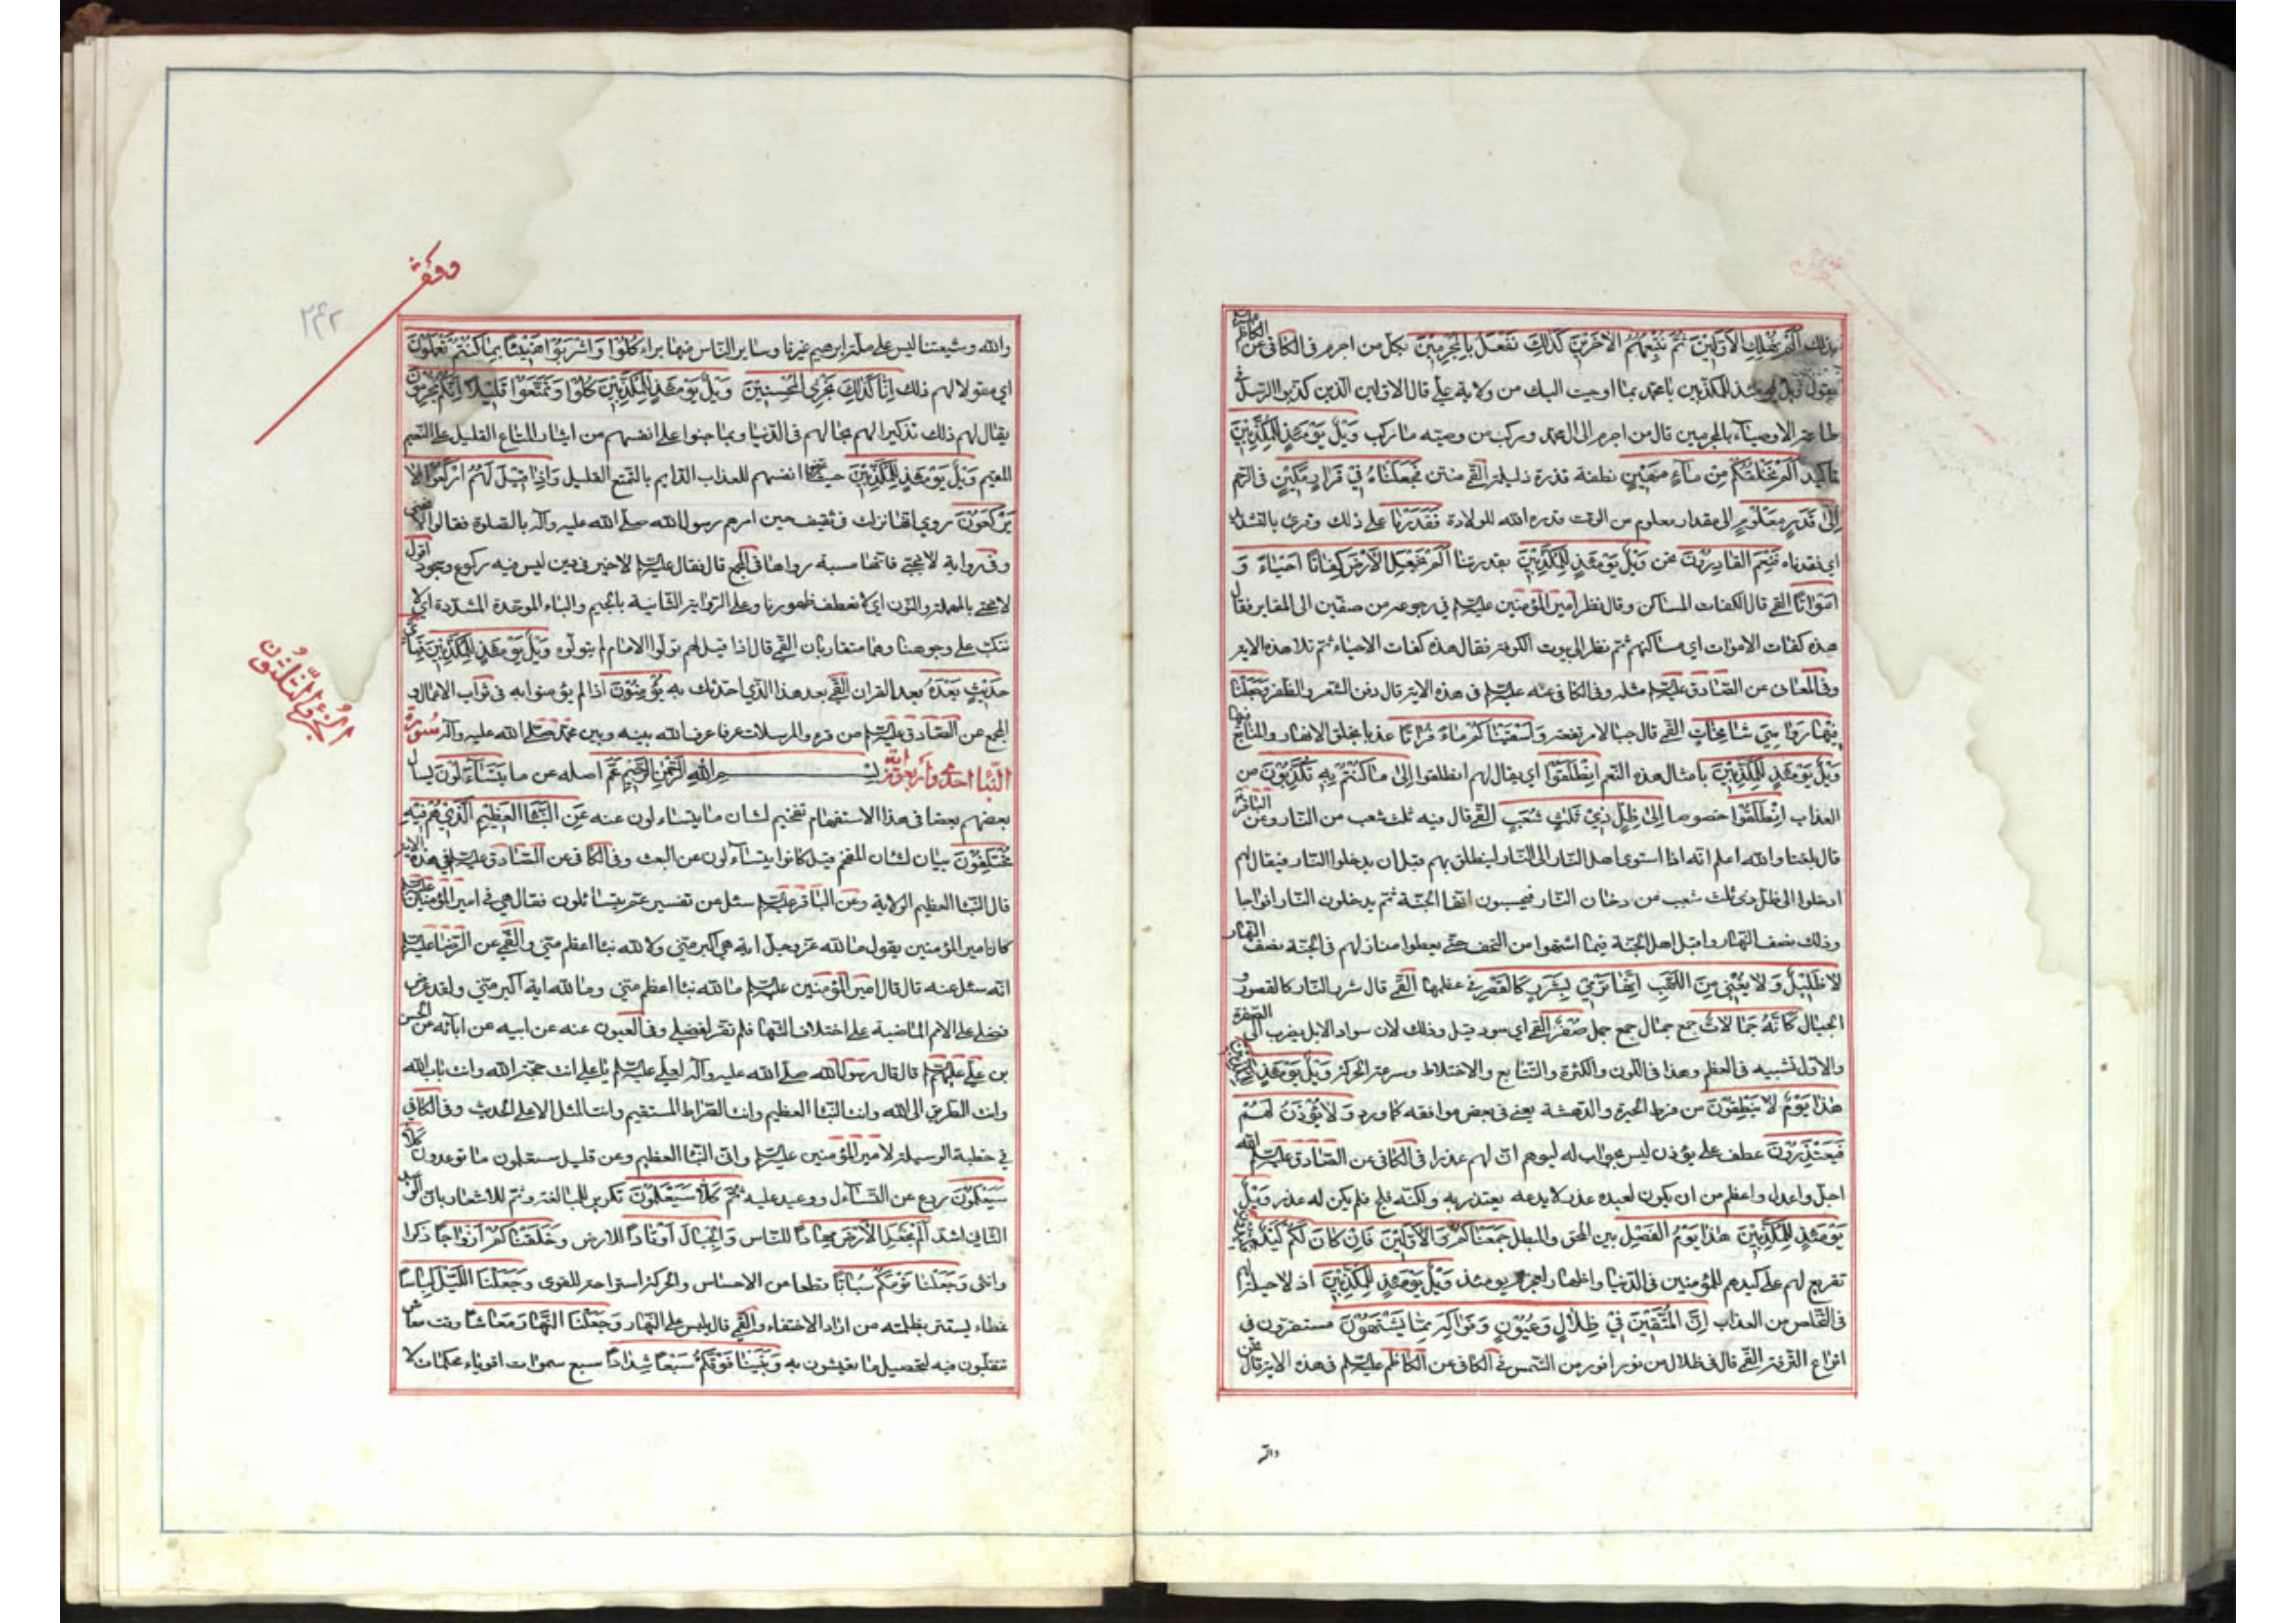 بذلك اَلَمْ نُهْلِكِ الْاَوَّلِينَ ثُمَّ نُتْبِعُهُمُ الْاٰخَرِينَ كَذٰلِكَ نَفْعَلُ بِالْمُجْرِمِينَ بكل من اجرم فى الكافى عن الكاظم
يقول ويل يومئذ للمكذبين يا محمد بما اوحيت اليك من ولاية على قال الاولين الذين كذبوا الرسل فى
طاعة الاوصياء بالمجرمين قال من اجرم الى آل محمد وركب من وصيه ما ركب وَيْلٌ يَوْمَئِذٍ لِلْمُكَذِّبِينَ
تاكيد اَلَمْ نَخْلُقْكُمْ مِنْ مَاۤءٍ مَهِينٍ نطفة قذرة ذليلة القمى منتن فَجَعَلْنَاهُ فِي قَرَارٍ مَكِينٍ فى الرحم
اِلىٰ قَدَرٍ مَعْلُومٍ الى مقدار معلوم من الوقت قدره الله للولادة فَقَدَرْنَا على ذلك وقرئ بالتشديد
اى فقدرناه فَنِعْمَ القَادِرُونَ نحن وَيْلٌ يَوْمَئِذٍ لِلْمُكَذِّبِينَ بقدرتنا اَلَمْ نَجْعَلِ الْاَرْضَ كِفَاتًا اَحْيَاءً وَ
اَمْوَاتًا القمى قال الكفات المساكن وقال نظر امير المؤمنين عليه السلم فى رجوعه من صفين الى المقابر فقال
هذه كفات الاموات اى مساكنهم ثم نظر الى بيوت الكوفة فقال هذه كفات الاحياء ثم تلا هذه الاية
وفى المعانى عن الصادق عليه السلم مثله وفى الكافى عنه عليه السلم فى هذه الاية قال دفن الشعر والظفر وَجَعَلْنَا
فِيهَا رَوَاسِيَ شَامِخَاتٍ القمى قال جبالا مرتفعة وَاَسْقَيْنَاكُمْ مَاءً فُرَاتًا عذبا بخلق الانهار والمنابع فيها
وَيْلٌ يَوْمَئِذٍ لِلْمُكَذِّبِينَ بامثال هذه النعم اِنْطَلِقُوا اى يقال لهم انطلقوا اِلىٰ مَا كُنْتُمْ بِهِ تُكَذِّبُونَ من
العذاب اِنْطَلِقُوا خصوصا اِلىٰ ظِلٍّ ذِي ثَلٰثِ شُعَبٍ القمى قال فيه ثلث شعب من النار وعن الباقر
قال بلغنا والله اعلم انه اذا استوى اهل النار الى النار لينطلق بهم قبل ان يدخلوا النار فيقال لهم
ادخلوا الى ظل ذى ثلث شعب من دخان النار فيحسبون انها الجنة ثم يدخلون النار افواجا
وذلك نصف النهار واقبل اهل الجنة فيما اشتهوا من التحف حتى يعطوا منازلهم فى الجنة نصف النهار
لَا ظَلِيلٍ وَلَا يُغْنِي مِنَ اللَّهَبِ اِنَّهَا تَرْمِي بِشَرَرٍ كَالْقَصْرِ فى عظمها القمى قال شرر النار كالقصور و
الجبال كَاَنَّهُ جِمَالَاتٌ جمع جمال جمع جمل صُفْرٌ القمى اى سود قيل وذلك لان سواد الابل يضرب الى الصفرة
والاول تشبيه فى العظم وهذا فى اللون والكثرة والتتابع والاختلاط وسرعة الحركة وَيْلٌ يَوْمَئِذٍ لِلْمُكَذِّبِينَ
هٰذَا يَوْمُ لَا يَنْطِقُونَ من فرط الحيرة والدهشة يعنى فى بعض مواقفه كما ورد وَلَا يُؤْذَنُ لَهُمْ
فَيَعْتَذِرُونَ عطف على يؤذن ليس بجواب له ليوهم ان لهم عذرا فى الكافى عن الصادق عليه السلم الله
اجل واعدل واعظم من ان يكون لعبده عذر لا يدعه يعتذر به ولكنه فلج فلم يكن له عذر وَيْلٌ
يَوْمَئِذٍ لِلْمُكَذِّبِينَ هٰذَا يَوْمُ الْفَصْلِ بين المحق والمبطل جَمَعْنَاكُمْ وَالْاَوَّلِينَ فَاِنْ كَانَ لَكُمْ كَيْدٌ فَكِيدُونِ
تقريع لهم على كيدهم للمؤمنين فى الدنيا واظهار لعجزهم يومئذ وَيْلٌ يَوْمَئِذٍ لِلْمُكَذِّبِينَ اذ لا حيلة لهم
فى التخلص من العذاب اِنَّ الْمُتَّقِينَ فِي ظِلَالٍ وَعُيُونٍ وَفَوَاكِهَ مِمَّا يَشْتَهُونَ مستقرون فى
انواع الترفه القمى قال فى ظلال من نور انور من الشمس فى الكافى عن الكاظم عليه السلم فى هذه الاية قال نحن
والله
وقف
٢٤٢
والله وشيعتنا ليس على ملة ابرهيم غيرنا وساير الناس منها براء كُلُوا وَاشْرَبُوا هَنِيئًا بِمَا كُنْتُمْ تَعْمَلُونَ
اى مقولا لهم ذلك اِنَّا كَذٰلِكَ نَجْزِي الْمُحْسِنِينَ وَيْلٌ يَوْمَئِذٍ لِلْمُكَذِّبِينَ كُلُوا وَتَمَتَّعُوا قَلِيلًا اِنَّكُمْ مُجْرِمُونَ
يقال لهم ذلك تذكيرا لهم بحالهم فى الدنيا وبما جنوا على انفسهم من ايثار المتاع القليل على النعيم
المقيم وَيْلٌ يَوْمَئِذٍ لِلْمُكَذِّبِينَ حيث عرضوا انفسهم للعذاب الدايم بالتمتع القليل وَاِذَا قِيلَ لَهُمُ ارْكَعُوا لَا
يَرْكَعُونَ روى انها نزلت فى ثقيف حين امرهم رسول الله صلى الله عليه وآله بالصلوة فقالوا لا ننحنى
وفى رواية لا نجبى فانها مسبة رواها فى المجمع قال فقال عليه السلم لا خير فى دين ليس فيه ركوع وسجود اقول
لا ننحنى بالمهملة والنون اى لا نعطف ظهورنا وعلى الرواية الثانية بالجيم والباء الموحدة المشددة اى لا
ننكب على وجوهنا وهما متقاربان القمى قال اذا قيل لهم تولوا الامام لم يتولوه وَيْلٌ يَوْمَئِذٍ لِلْمُكَذِّبِينَ فَبِاَيِّ
حَدِيثٍ بَعْدَهُ بعد القران القمى بعد هذا الذى احدثك به يُؤْمِنُونَ اذا لم يؤمنوا به فى ثواب الاعمال و
المجمع عن الصادق عليه السلم من قرء والمرسلات عرفا عرف الله بينه وبين محمد صلى الله عليه وآله سورة
النبا احدى واربعون آية بسم الله الرحمن الرحيم عَمَّ اصله عن ما يَتَسَاۤءَلُونَ يسال
بعضهم بعضا فى هذا الاستفهام تفخيم لشان ما يتساءلون عنه عَنِ النَّبَاِ الْعَظِيمِ الَّذِي هُمْ فِيهِ
مُخْتَلِفُونَ بيان لشان المفخم قيل كانوا يتساءلون عن البعث وفى الكافى عن الصادق عليه السلم فى هذه الاية
قال النبا العظيم الولاية وعن الباقر عليه السلم سئل عن تفسير عم يتسائلون فقال هى فى امير المؤمنين عليه السلم
كان امير المؤمنين يقول ما لله عز وجل اية هى اكبر منى ولا لله نبا اعظم منى والقمى عن الرضا عليه السلم
انه سئل عنه قال قال امير المؤمنين عليه السلم ما لله نبا اعظم منى وما لله اية اكبر منى ولقد عرض
فضلى على الامم الماضية على اختلاف السنتها فلم تقر لفضلى وفى العيون عنه عن ابيه عن ابائه عن الحسين
بن على عليهم السلم قال قال رسول الله صلى الله عليه وآله لعلى عليه السلم يا على انت حجة الله وانت باب الله
وانت الطريق الى الله وانت النبا العظيم وانت الصراط المستقيم وانت المثل الاعلى الحديث وفى الكافى
فى خطبة الوسيلة لامير المؤمنين عليه السلم وانى النبا العظيم وعن قليل ستعلمون ما توعدون كَلَّا
سَيَعْلَمُونَ ردع عن التساءل ووعيد عليه ثُمَّ كَلَّا سَيَعْلَمُونَ تكرير للمبالغة وثم للاشعار بان الوعيد
الثانى اشد اَلَمْ نَجْعَلِ الْاَرْضَ مِهَادًا للناس وَالْجِبَالَ اَوْتَادًا للارض وَخَلَقْنَاكُمْ اَزْوَاجًا ذكرا
وانثى وَجَعَلْنَا نَوْمَكُمْ سُبَاتًا قطعا من الاحساس والحركة استراحة للقوى وَجَعَلْنَا اللَّيْلَ لِبَاسًا
غطاء يستتر بظلمته من اراد الاختفاء والقمى قال يلبس على النهار وَجَعَلْنَا النَّهَارَ مَعَاشًا وقت معاش
تتقلبون فيه لتحصيل ما تعيشون به وَبَنَيْنَا فَوْقَكُمْ سَبْعًا شِدَادًا سبع سموات اقوياء محكمات لا
الجزء الثلثون